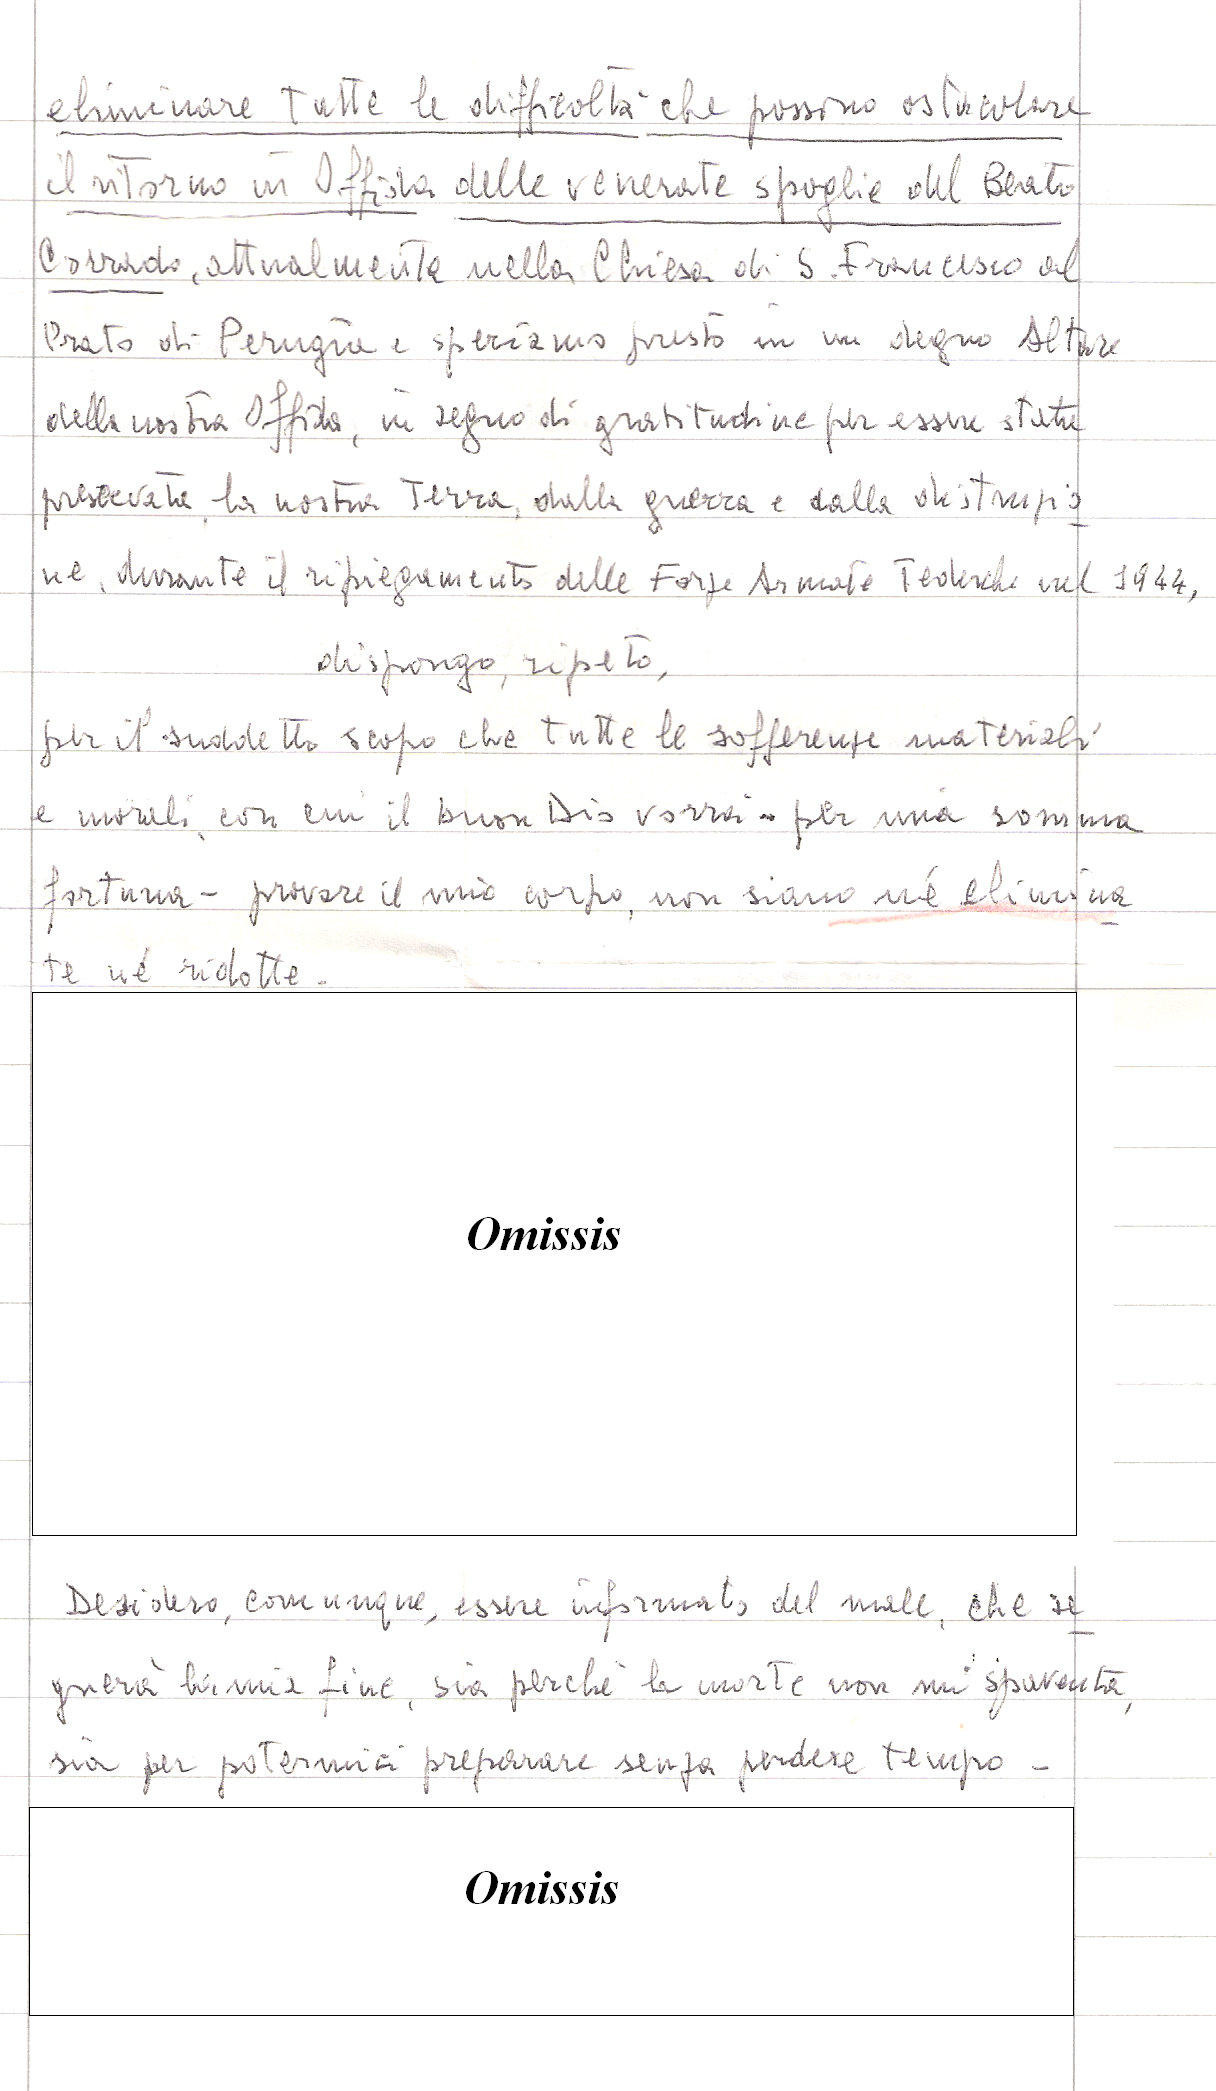 eliminare tutte le difficoltà che possino ostacolare
il ritorno in Offida delle venerate spoglie del Beato
Corrado, attualmente nella Chiesa di S. Francesco al
Prato di Perugia e speriamo presto in un degno Altare
della nostra Offida, in segno di gratitudine per essere stata
preservata, la nostra Terra, dalla guerra e dalla distruzio
ne, durante il ripiegamento delle Forze Armate Tedesche nel 1944,
dispongo, ripeto,
per il suddetto scopo che tutte le sofferenze materiali
e morali, con cui il buon Dio vorrà - per mia somma
fortuna - provare il mio corpo, non siano né elimina
te né ridotte.
Omissis
Desidero, comunque, essere informato del male, che se
gnerà la mia fine, sia perchè la morte non mi spaventa,
sia per potermici preparare senza perdere tempo -
Omissis